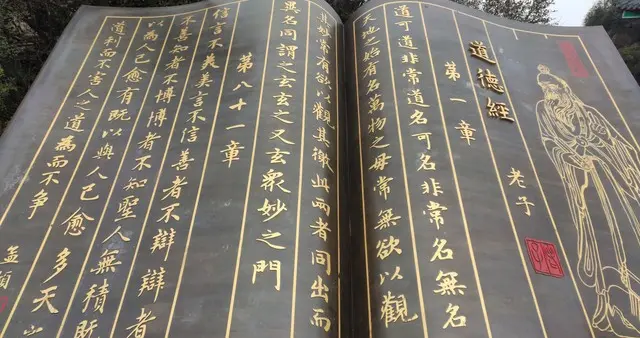 道德經
第一章
老子
道可道非常道名可名非常名無名
天地之始有名萬物之母常無欲以觀
其妙常有欲以觀其徼此兩者同出而
異名同謂之玄玄之又玄衆妙之門
第八十一章
信言不美美言不信善者不辯辯者
不善知者不博博者不知聖人無積既
以為人己愈有既以與人己愈多天之
道利而不害人之道為而不争
孟頫